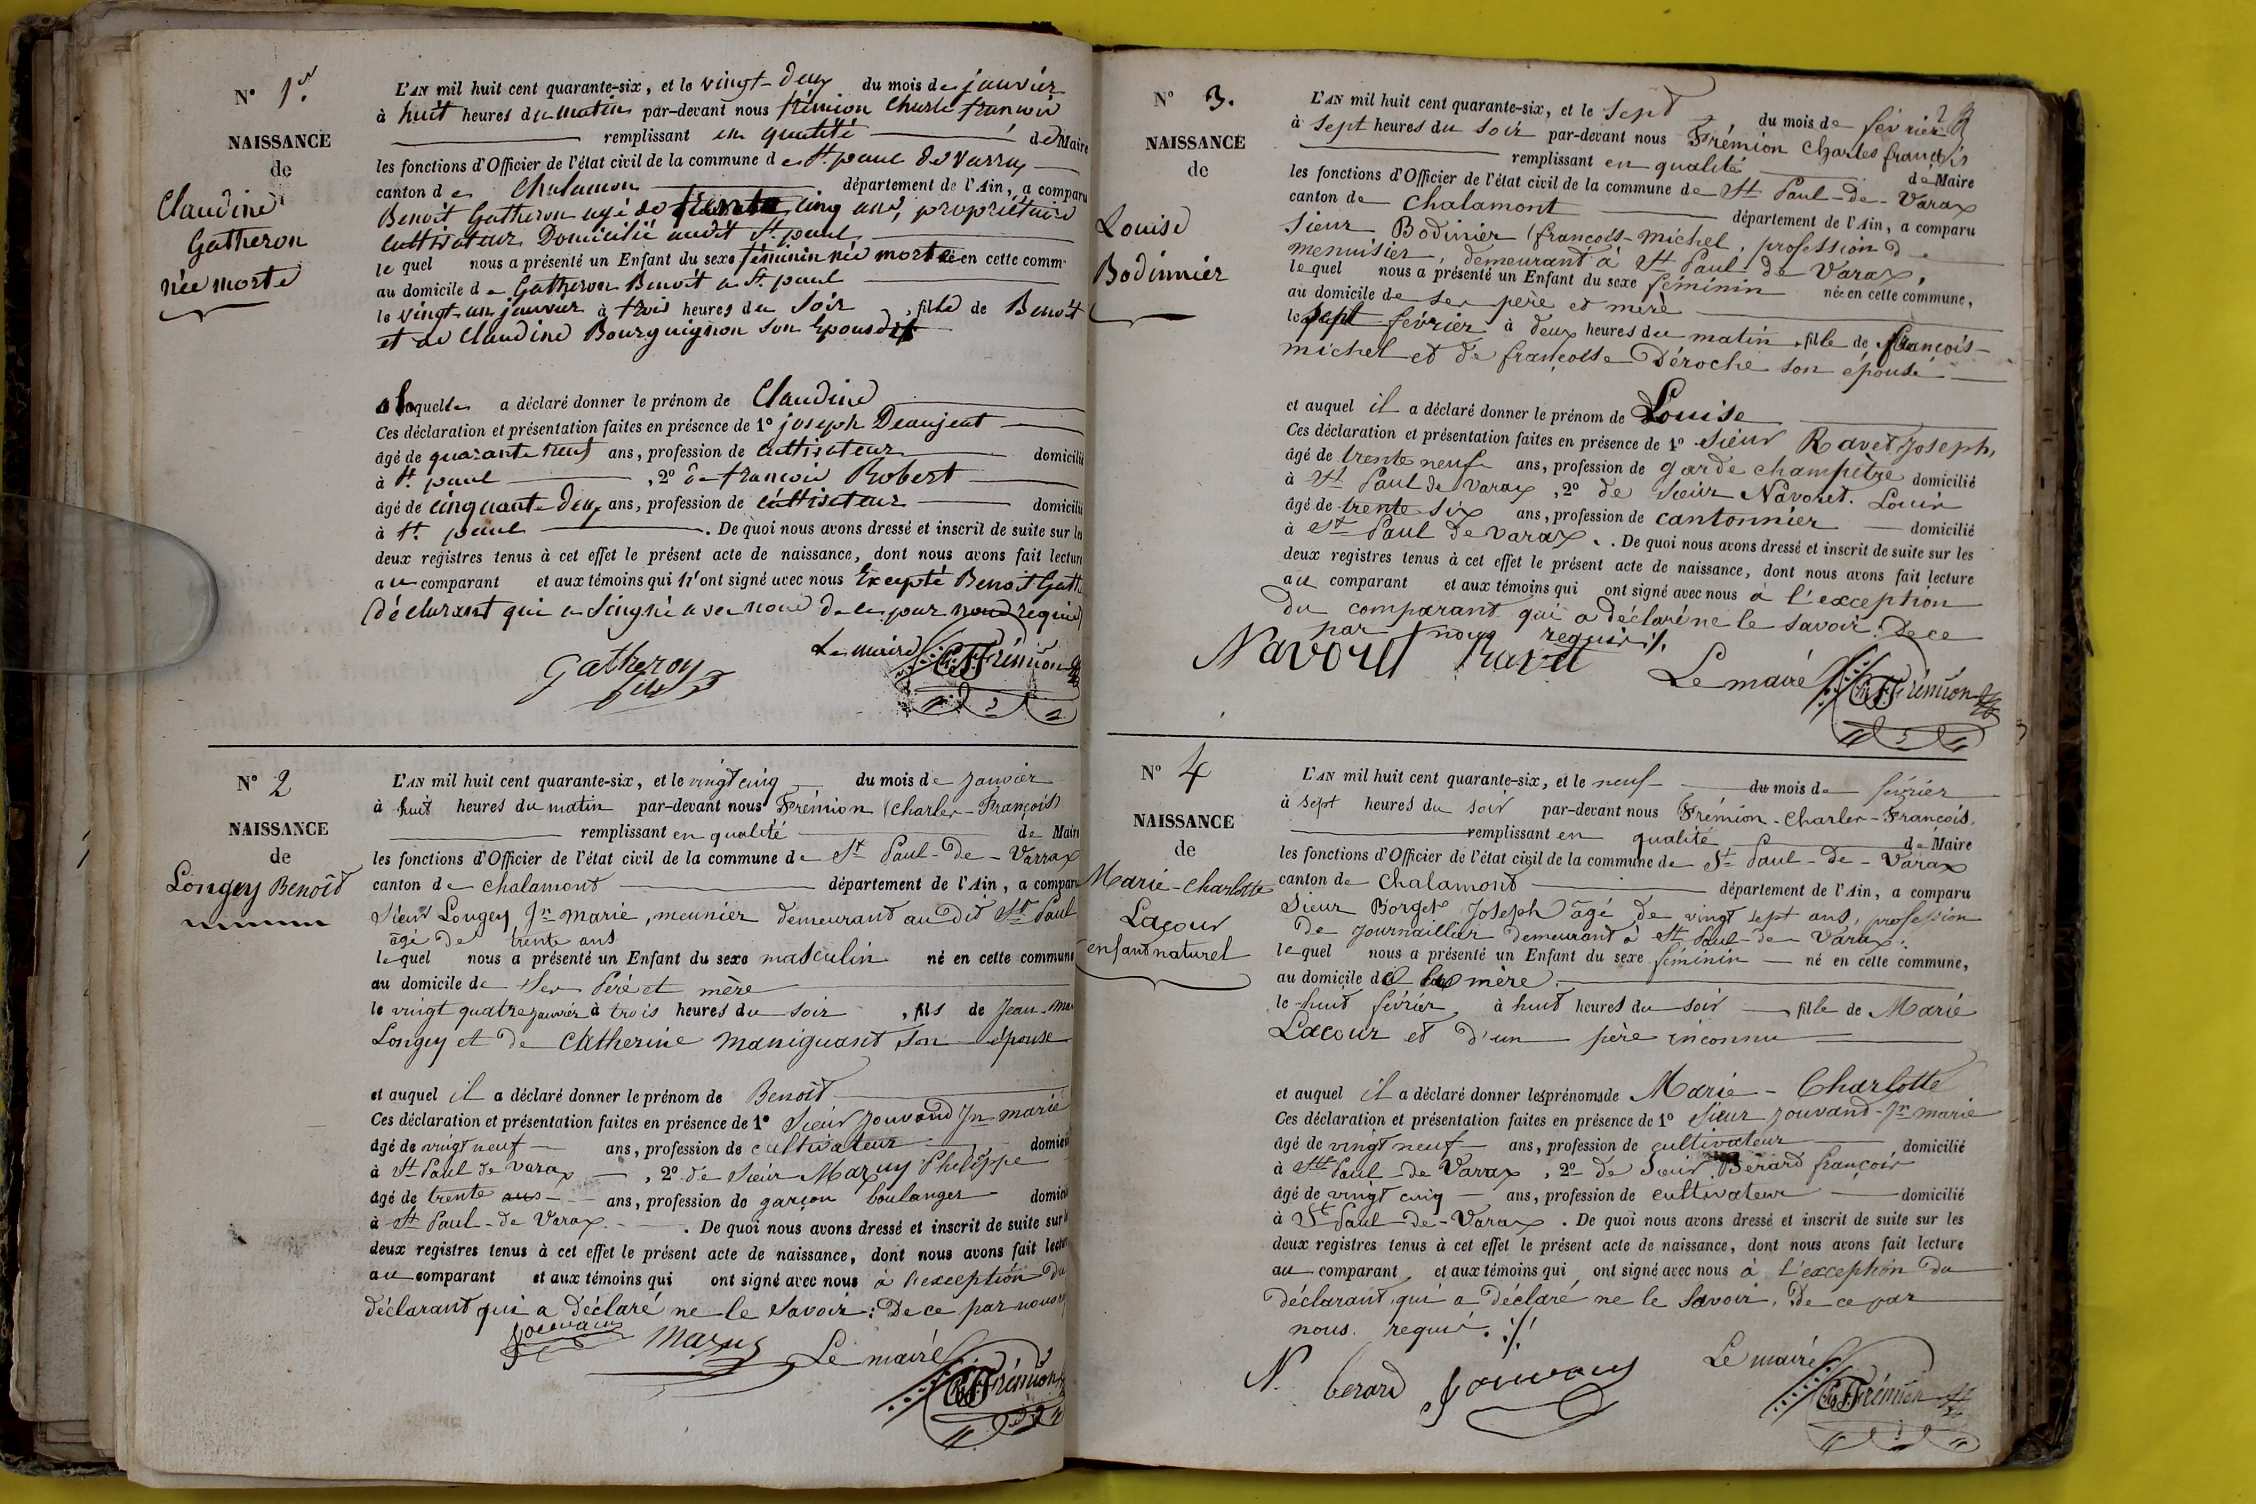 N° 1er
NAISSANCE
de
Claudine
Gatheron
née morte
L'AN mil huit cent quarante-six, et le vingt-deux du mois de janvier
à huit heures du matin par-devant nous frémion Charle françois
remplissant en qualité de Maire
les fonctions d'Officier de l'état civil de la commune de St. paul de Varray
canton de Chalamon département de l'Ain, a comparu
Benoit Gatheron agé de trente cinq ans, propriétaire
cultivateur Domicilié audit St. paul
le quel nous a présenté un Enfant du sexe féminin née morte en cette comm
au domicile de Gatheron Benoit a St. paul
le vingt-un janvier à trois heures du soir, fille de Benoit
et de Claudine Bourguignon son Epouse
a laquelle a déclaré donner le prénom de Claudine
Ces déclaration et présentation faites en présence de 1° joseph Deaujeat
âgé de quarante neuf ans, profession de cultivateur domicilié
à St. paul, 2° de francois Robert
âgé de cinquante-deux ans, profession de cultivateur domicilié
à St. paul. De quoi nous avons dressé et inscrit de suite sur les
deux registres tenus à cet effet le présent acte de naissance, dont nous avons fait lecture
au comparant et aux témoins qui n'ont signé avec nous Excepté Benoit Gath
déclarant qui a singné avec nous de ce par nous requis
Le maire
Gatheron
Ch Frémion
N° 2
NAISSANCE
de
Longey Benoît
L'AN mil huit cent quarante-six, et le vingt cinq du mois de janvier
à huit heures du matin par-devant nous Frémion (Charles-François)
remplissant en qualité de Maire
les fonctions d'Officier de l'état civil de la commune de St Paul-de-Varrax
canton de Chalamont département de l'Ain, a comparu
Sieur Longey Jn Marie, meunier demeurant au dit St Paul
âgé de trente ans
le quel nous a présenté un Enfant du sexe masculin né en cette commune
au domicile de ses Père et mère
le vingt quatre janvier à trois heures du soir, fils de Jean-Mar
Longey et de Catherine Maniguant son épouse
et auquel il a déclaré donner le prénom de Benoît
Ces déclaration et présentation faites en présence de 1° Sieur Jouvand Jn marie
âgé de vingt neuf ans, profession de cultivateur domicil
à St Paul de Varax, 2° de Sieur Mazuy Philippe
âgé de trente ans ans, profession de garçon boulanger domicil
à St Paul-de Varax. De quoi nous avons dressé et inscrit de suite sur
deux registres tenus à cet effet le présent acte de naissance, dont nous avons fait lectur
au comparant et aux témoins qui ont signé avec nous à l'exception du
déclarant qui a déclaré ne le savoir: De ce par nous
Jouvand Mazuy Le maire
Ch Frémion
N° 3.
NAISSANCE
de
Louise
Bodinnier
L'AN mil huit cent quarante-six, et le sept du mois de février
à sept heures du soir par-devant nous Frémion Charles françois
remplissant en qualité de Maire
les fonctions d'Officier de l'état civil de la commune de St Paul-de-Varax
canton de Chalamont département de l'Ain, a comparu
Sieur Bodinier (françois-Michel, profession de
menuisier, demeurant à St Paul-de Varax,
lequel nous a présenté un Enfant du sexe féminin née en cette commune,
au domicile de ses père et mère
le sept février à deux heures du matin, fille de françois-
michel et de françoise Déroche son épouse
et auquel il a déclaré donner le prénom de Louise
Ces déclaration et présentation faites en présence de 1° Sieur Ravet Joseph,
âgé de trente neuf ans, profession de garde champêtre domicilié
à St Paul de Varax, 2° de Sieur Navoret. Louis
âgé de trente six ans, profession de cantonnier domicilié
à St Paul de Varax. De quoi nous avons dressé et inscrit de suite sur les
deux registres tenus à cet effet le présent acte de naissance, dont nous avons fait lecture
au comparant et aux témoins qui ont signé avec nous à l'exception
du comparant qui a déclaré ne le savoir. De ce
par nous requis ./.
Navoret Ravet Le maire
Ch Frémion
N° 4
NAISSANCE
de
Marie-Charlotte
Lacour
enfant naturel
L'AN mil huit cent quarante-six, et le neuf du mois de février
à sept heures du soir par-devant nous Frémion-Charles-François.
remplissant en qualité de Maire
les fonctions d'Officier de l'état civil de la commune de St Paul-de-Varax
canton de Chalamont département de l'Ain, a comparu
Sieur Borget Joseph âgé de vingt sept ans, profession
de journaillier demeurant à St Paul-de Varax.
le quel nous a présenté un Enfant du sexe féminin né en cette commune,
au domicile de la mère
le huit février à huit heures du soir, fille de Marie
Lacour et d'un père inconnu
et auquel il a déclaré donner les prénoms de Marie-Charlotte
Ces déclaration et présentation faites en présence de 1° Sieur Jouvand-Jn marie
âgé de vingt neuf ans, profession de cultivateur domicilié
à St Paul-de Varax, 2° de Sieur Bérard françois
âgé de vingt cinq ans, profession de cultivateur domicilié
à St Paul-de-Varax. De quoi nous avons dressé et inscrit de suite sur les
deux registres tenus à cet effet le présent acte de naissance, dont nous avons fait lecture
au comparant et aux témoins qui ont signé avec nous à l'exception du
déclarant, qui a déclaré ne le savoir. De ce par
nous requis. ./.
N. berard Jouvand Le maire
Ch Frémion